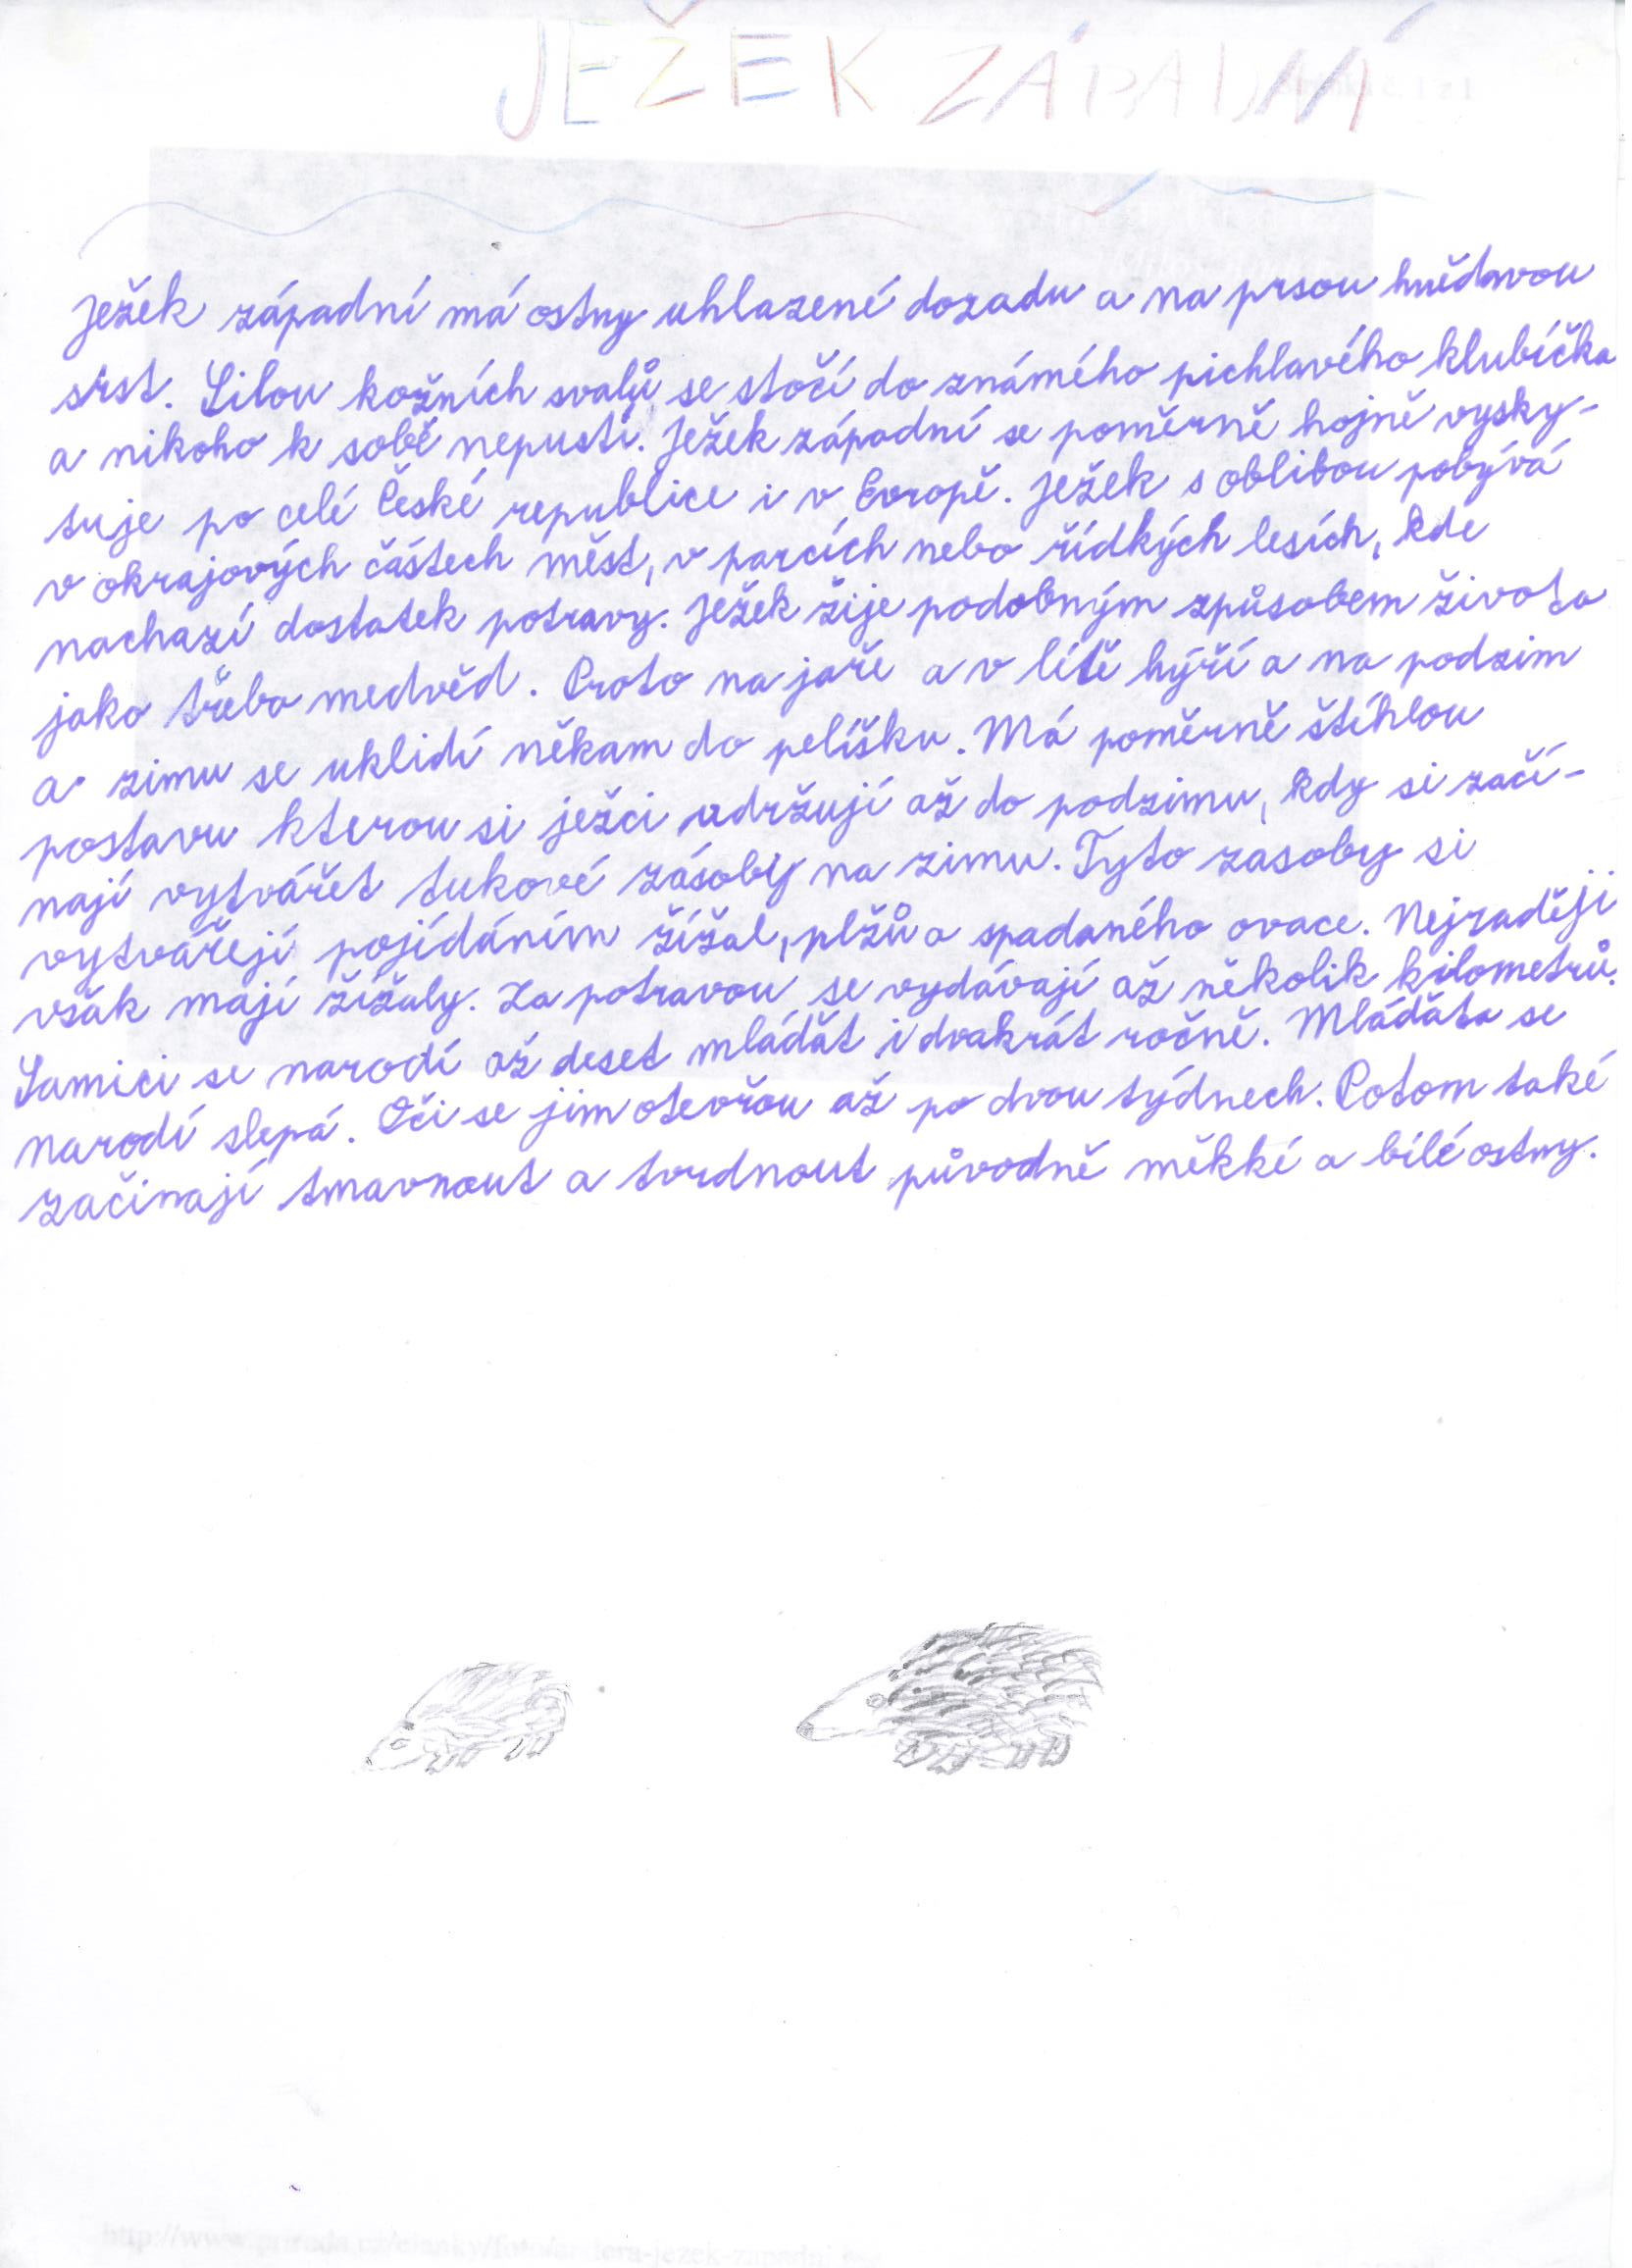 JEŽEK ZÁPADNÍ
Ježek západní má ostny uhlazené dozadu a na prsou hnědavou
srst. Silou kožních svalů se stočí do známého pichlavého klubíčka
a nikoho k sobě nepustí. Ježek západní se poměrně hojně vysky-
tuje po celé České republice i v Evropě. Ježek s oblibou pobývá
v okrajových částech měst, v parcích nebo řídkých lesích, kde
nachazí dostatek potravy. Ježek žije podobným způsobem života
jako třeba medvěd. Proto na jaře a v létě hýří a na podzim
a zimu se uklidí někam do pelíšku. Má poměrně štíhlou
postavu kterou si ježci udržují až do podzimu, kdy si začí-
nají vytvářet tukové zásoby na zimu. Tyto zasoby si
vytvářejí pojídáním žížal, plžů a spadaného ovace. Nejraději
však mají žížaly. Za potravou se vydávají až několik kilometrů.
Samici se narodí až deset mláďat i dvakrát ročně. Mláďata se
narodí slepá. Oči se jim otevřou až po dvou týdnech. Potom také
začínají tmavnout a tvrdnout původně měkké a bílé ostny.